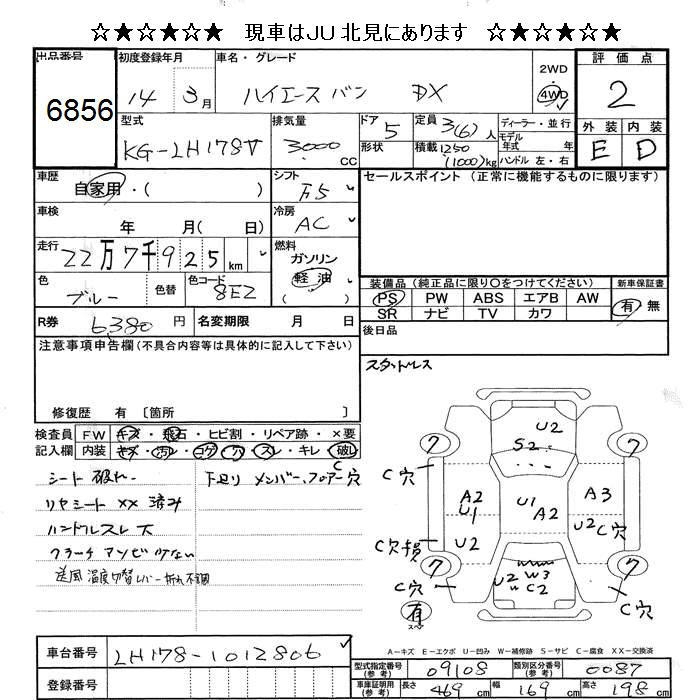 ☆★☆★☆ 現車はJU北見にあります ☆★☆★☆
出品番号 初度登録年月 車名・グレード 評価点
6856 14年3月 ハイエースバン DX 2WD・4WD 2
型式 排気量 ドア 定員 ディーラー・並行 外装 内装
KG-LH178V 3000CC 5 3(6)人 モデル年式 年 E D
形状 積載 1250(1000)kg ハンドル 左・右
車歴 自家用・( ) シフト F5 セールスポイント(正常に機能するものに限ります)
車検 年 月( 日) 冷房 AC
走行 22万7千925km 燃料 ガソリン 軽油 ( )
色 ブルー 色替 色コード 8E2
装備品(純正品に限り○をつけてください) 新車保証書
PS PW ABS エアB AW 有 無
SR ナビ TV カワ
R券 6,380円 名変期限 月 日 後日品
注意事項申告欄(不具合内容等は具体的に記入して下さい) スタットレス
修復歴 有〔箇所 〕
検査員 FW キズ・飛石・ヒビ割・リペア跡・×要
記入欄 内装 キズ・汚レ・コゲ・穴・スレ・キレ・破レ
シート破れ 下回りメンバー、フロアーC穴
リヤシート××済み
ハンドルスレ大
送風 温度切替レバー折れ不調
U2
S2
7 7
C穴
A2 U1 U1 A2 A3
U2 U2 C穴
C穴損
7 7
U2 W3
C穴 W C2 C穴
有
A-キズ E-エクボ U-凹み W-補修跡 S-サビ C-腐食 XX-交換済
車台番号 LH178-1012806
型式指定番号(参考) 09108 類別区分番号(参考) 0087
登録番号 車庫証明用(参考) 長さ 469cm 幅 169cm 高さ 198cm